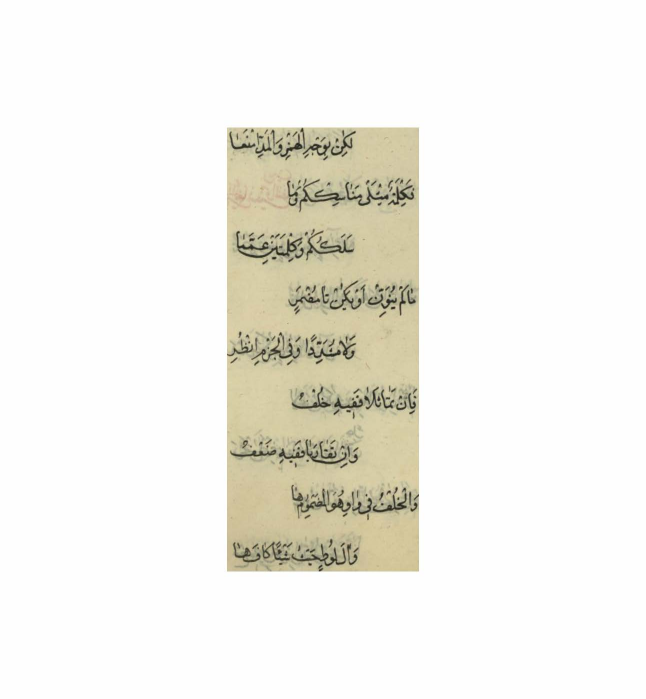 لكن بوجه الهمز والمد امنعا
فكلمة مثلى مناسككم وما
سلككم وكلمتين عمما
مالم ينون او يكن تا مضمر
ولا مشددا وفى الجزم انظر
فان تماثلا ففيه خلف
وان تقاربا ففيه ضعف
والخلف فى واو هو المضموم ها
وآل لوط جئت شيئا كاف ها